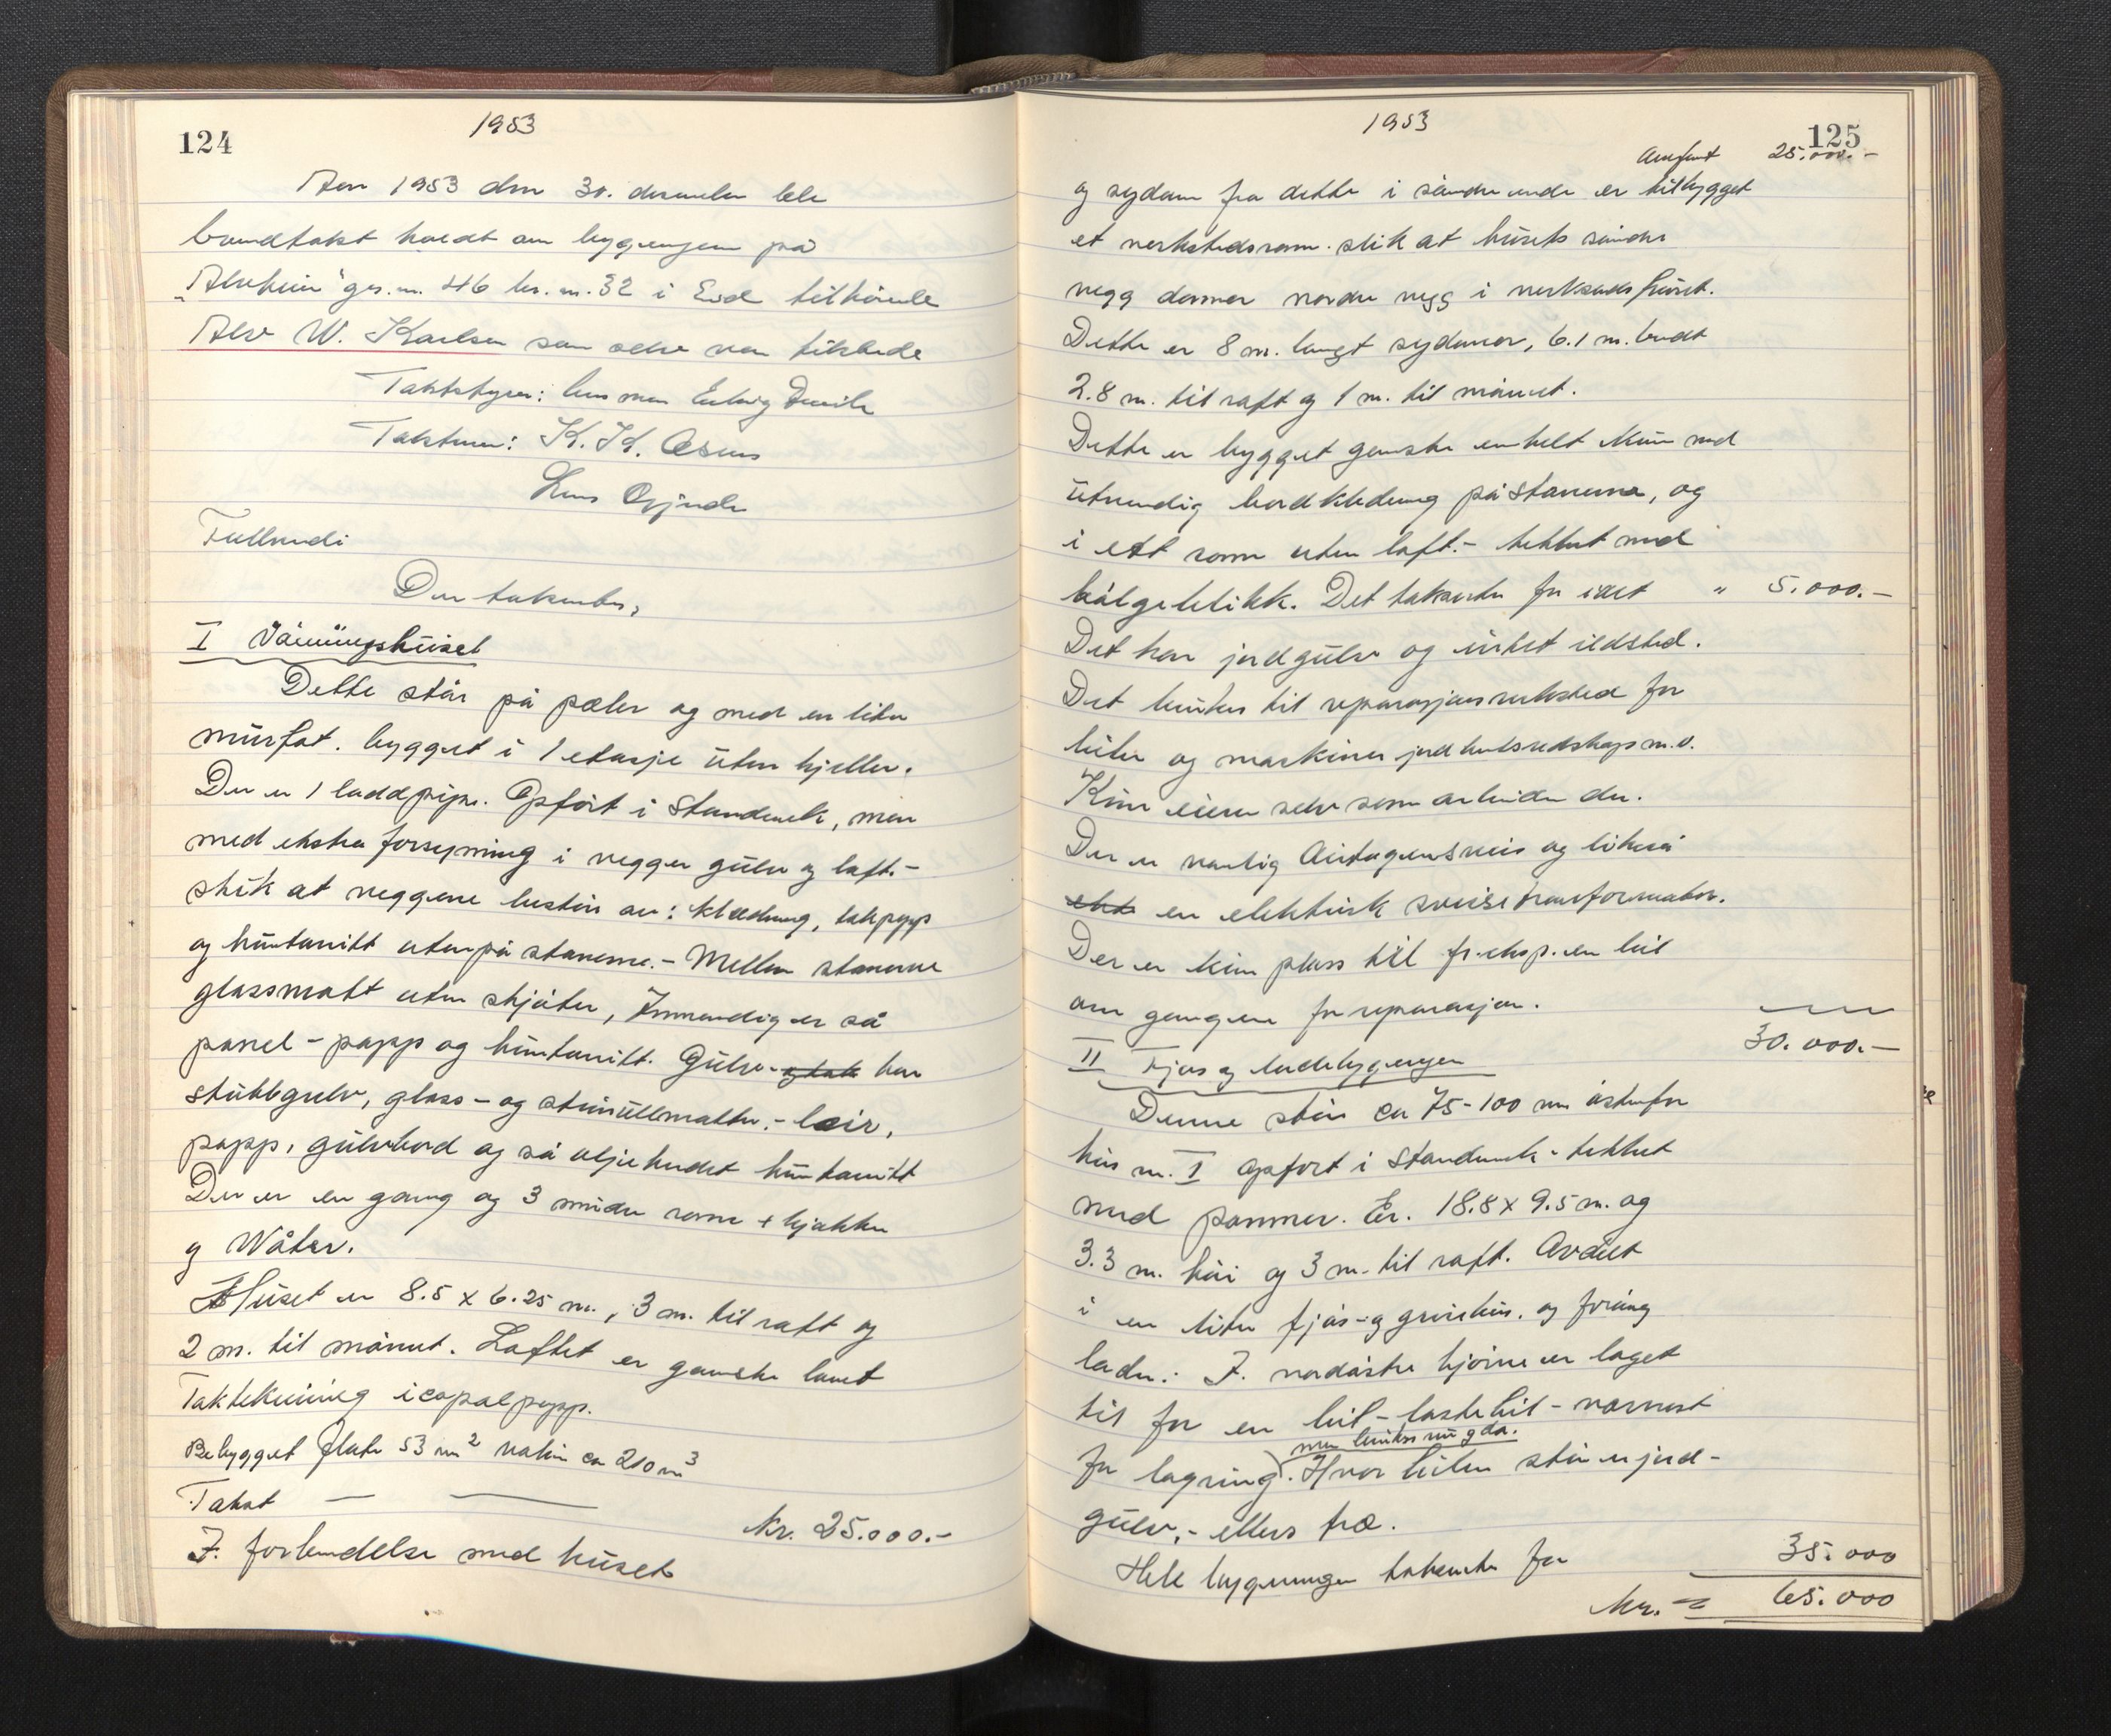 124
1953
Aar 1953 den 30. desember ble
branntakst holdt om bygningen på
"Alvheim" grs. nr. 46 br. nr. 32 i Eid tilhörende
Alv W. Karlsen som selv var tilstede
Takstmenn: K. K.
Lars
Den takseres,
I Våningshuset
Dette står på pæler og med en liten
murfot. bygget i 1 etasje uten kjeller.
Der er 1 luddpipe. Opfört i Standverk, men
med ekstra forsyning i vegger gulv og loft.-
slik at veggene består av: klædning, takpapp
og huntonitt utenpå stavene.- Mellem stavene
glassmatt uten skjöter, Innvendig er så
panel - papp og huntonitt. Gulv og tak har
stubbgulv, glass- og steinullmatter.- leir,
papp, gulvbord og så oljeherdet huntonitt
Der er en gang og 3 mindre rom + kjøkken
og Water.
Huset er 8.5 x 6.25 m., 3 m. til raft og
2 m. til mönnet. Loftet er ganske lavt
Taktekking icopalpapp.
Bebygget flate 53 m² volum ca 210 m³
Takst — — Kr. 25.000.-
I forbindelse med huset
1953
125
Overfört 25.000.-
og sydover fra dette i söndre ende er tilbygget
et verkstedsrom. slik at husets söndre
vegg danner nordre vegg i verkstedshuset.
Dette er 8 m. langt sydover, 6.1 m. bredt
2.8 m. til raft og 1 m. til mönnet.
Dette er bygget ganske enkelt kun med
utvendig bordkledning på stavene, og
i ett rom uten loft.- tekket med
bölgeblikk. Det takseres for i alt " 5.000.-
Det har jordgulv og intet ildsted.
Det brukes til reparasjonsverksted for
biler og maskiner jordbruksredskap m.v.
Kun eieren selv som arbeider der.
Der er vanlig sveis og likeså
en elektrisk sveisetransformator.
Der er kun plass til f. eksp. en bil
om gangen for reparasjon.
30.000.-
II Fjös og ladebygningen
Denne står ca 75-100 m östenfor
hus nr. I Opfört i Standverk - tekket
med panner. Er. 18.8 x 9.5 m. og
3.3 m. höi og 3 m. til raft. Avdelt
i en liten fjös- og grisehus. og foring
lade.: I. nordöstre hjörne er laget
til for en bil - lastebil - nærmest
men brukes nu g da.
for lagring. Hvor bilen står er jord-
gulv,- ellers træ.
Hele bygningen takseres for 35.000
Kr. = 65.000